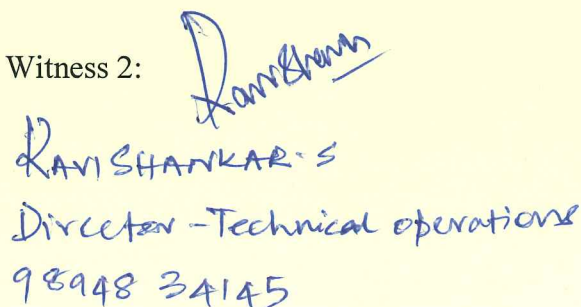 Witness 2: Ravishankar
RAVI SHANKAR.S
Director - Technical operations
98948 34145